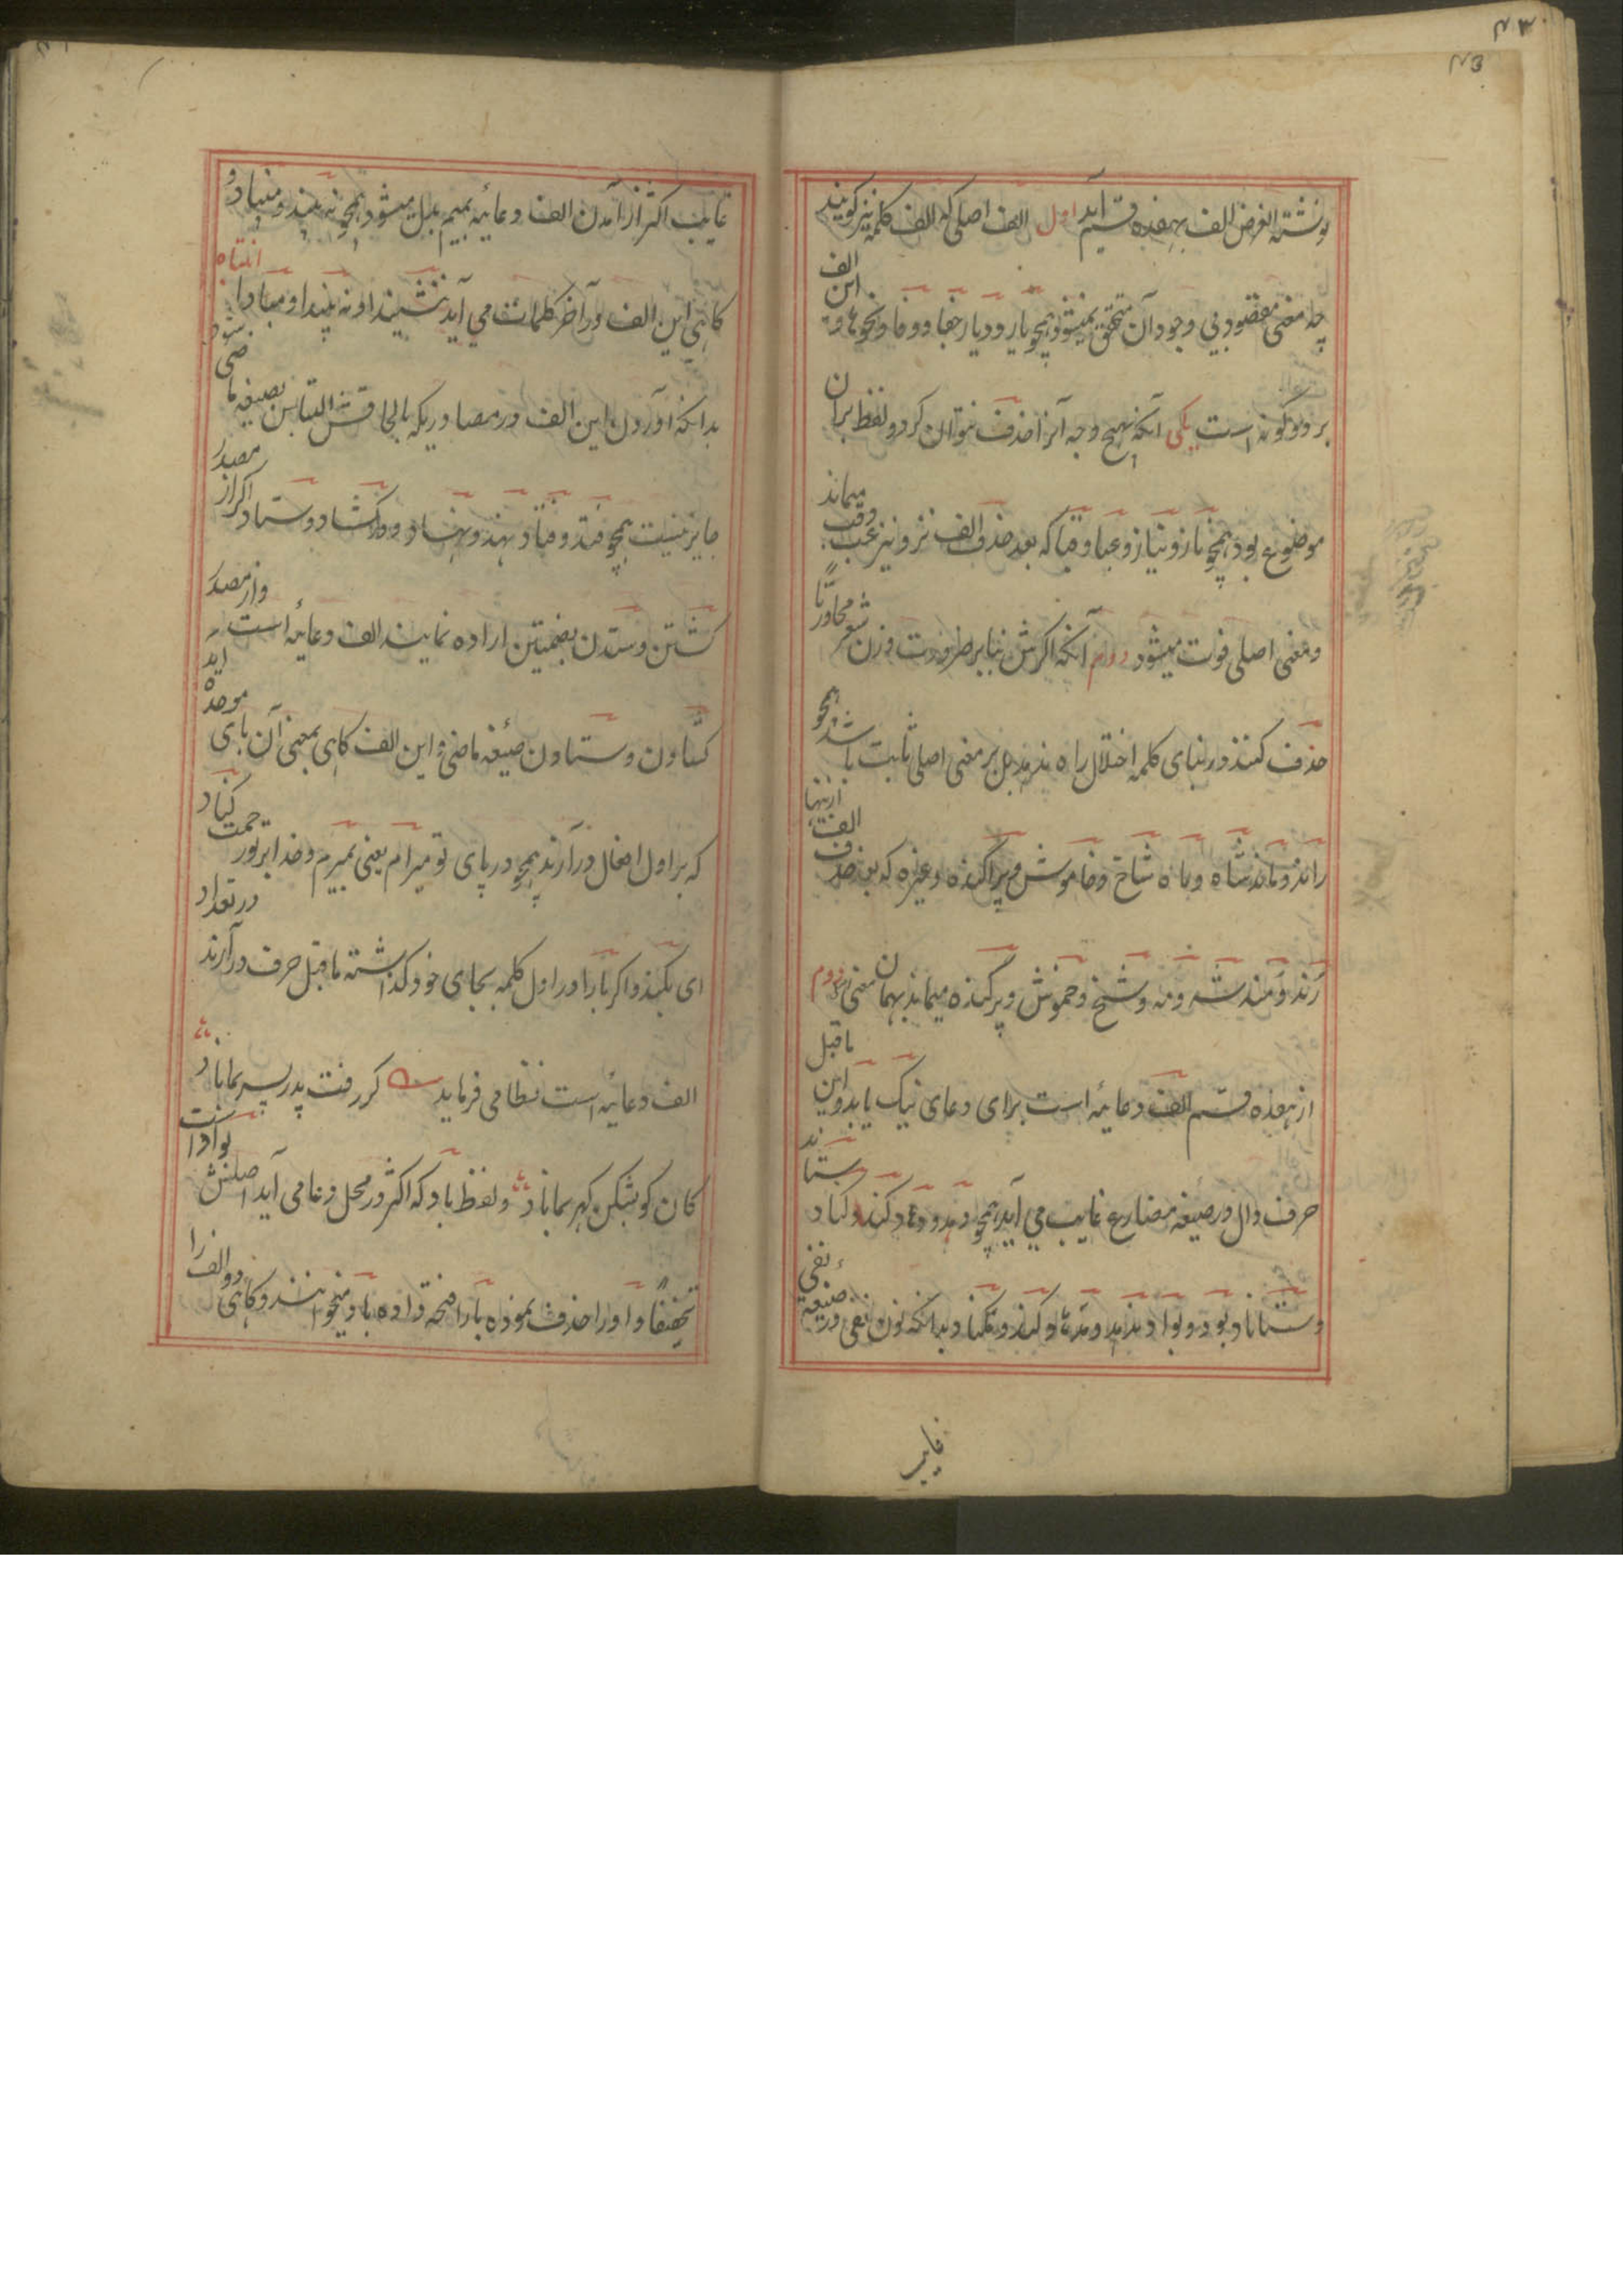 ۴۳
۴۳
نوشته الغرض الف بهفده قسم آید اول الف اصلی که الف کلمه نیز گویند
چه معنی مقصود بی وجود آن متحقق نمیشود همچو یار و دیار و جفا و وفا و نحوها و این الف
بر دو گونه است یکی آنکه بهیچ وجه آنرا حذف نتوان کرد و لفظ بران
موضوع بود همچو ناز و نیاز و عبا و قبا که بعد حذف الف نز و نیز عب وقب میماند
و معنی اصلی فوت میشود دوم آنکه اگرش بنابر ضرورت وزن شعر محاورتاً
حذف کنند در بنای کلمه اختلال راه ندهد بل بر معنی اصلی ثابت باشد همچو
راند و ماند شاه و ماه شاخ و خاموش و پراگنده و غیره که بعد حذف الف ازینها
رند و مند شه و مه و شخ و خموش و پرگنده میماند بهمان معنی دوم
از هفده قسم الف دعائیه است برای دعای نیک یا بد و این ماقبل
حرف دال در صیغه مضارع غایب می آید همچو دهد و دهاد کند و کناد ستاند
و ستاناد بود و بواد و ندهد و ندهاد و نکند و نکناد و بدانکه نون نفی در صیغه نفی
غایب
غایب اکثر از آمدن الف دعائیه بمیم بدل میشود همچو نه بیند و مبیناد و
گاهی این الف در آخر کلمات می آید نشیندا و نه بیندا و مبادا انتباه
بدانکه آوردن این الف در مصادریکه بالحاقش التباس بصیغه ماضی شود
جایز نیست همچو فتد و فتاد نهد و نهاد و کشاد و ستاد اگر از مصدر
کشتن و ستدن بضمتین اراده نمایند الف دعائیه است و از مصدر
کشادن و ستادن صیغه ماضی و این الف گاهی بمعنی آن بای موحده آید
که بر اول افعال در آرند همچو در پای تو میرام یعنی بمیرم و خدا بر تو رحمت کناد
ای بکند و اگر با را در اول کلمه بجای خود گذاشته ماقبل حرف در آرند در تعداد
الف دعائیه است نظامی فرماید گر رفت پدر پسر بماناد
کان کو بشکن گهر بماناد و لفظ باد که اکثر در محل دعا می آید اصلش بواد است
تخفیفاً واو را حذف نموده با را فتحه داده باد میخوانند و گاهی دو الف را